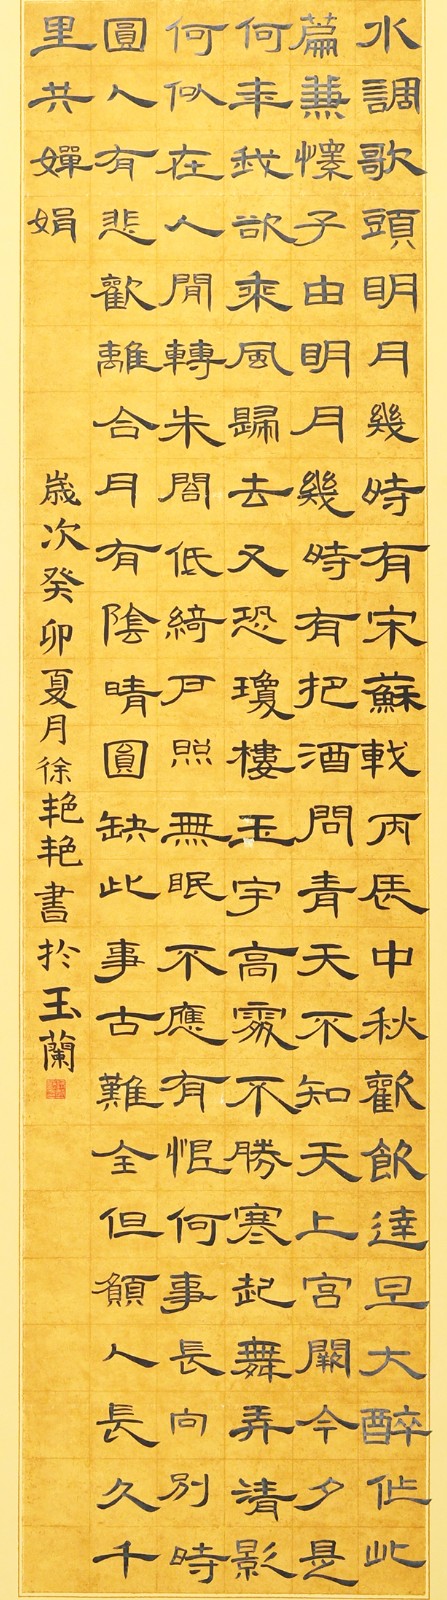 水調歌頭明月幾時有宋蘇軾丙辰中秋歡飲達旦大醉作此
篇兼懷子由明月幾時有把酒問青天不知天上宮闕今夕是
何年我欲乘風歸去又恐瓊樓玉宇高處不勝寒起舞弄清影
何似在人間轉朱閣低綺戶照無眠不應有恨何事長向別時
圓人有悲歡離合月有陰晴圓缺此事古難全但願人長久千
里共嬋娟
歲次癸卯夏月徐艳艳書於玉蘭